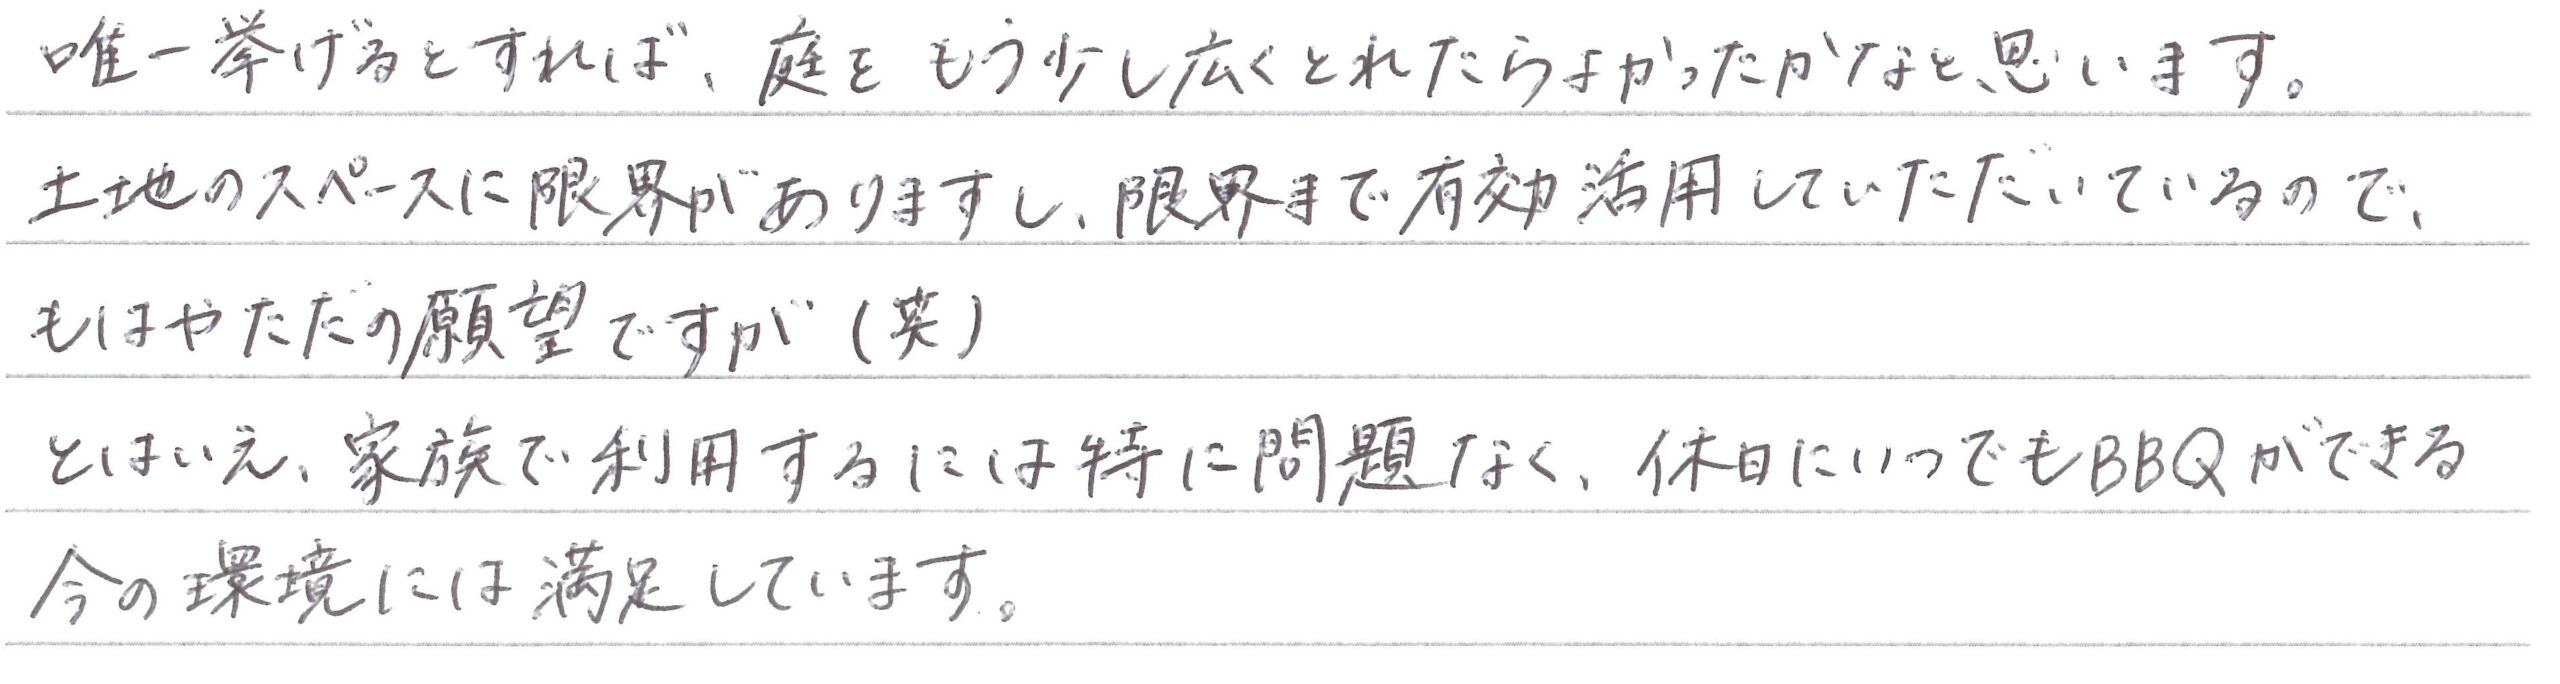 唯一挙げるとすれば、庭をもう少し広くとれたらよかったかなと、思います。
土地のスペースに限界がありますし、限界まで有効活用していただいているので、
もはやただの願望ですが(笑)
とはいえ、家族で利用するには特に問題なく、休日にいつでもBBQができる
今の環境には満足しています。